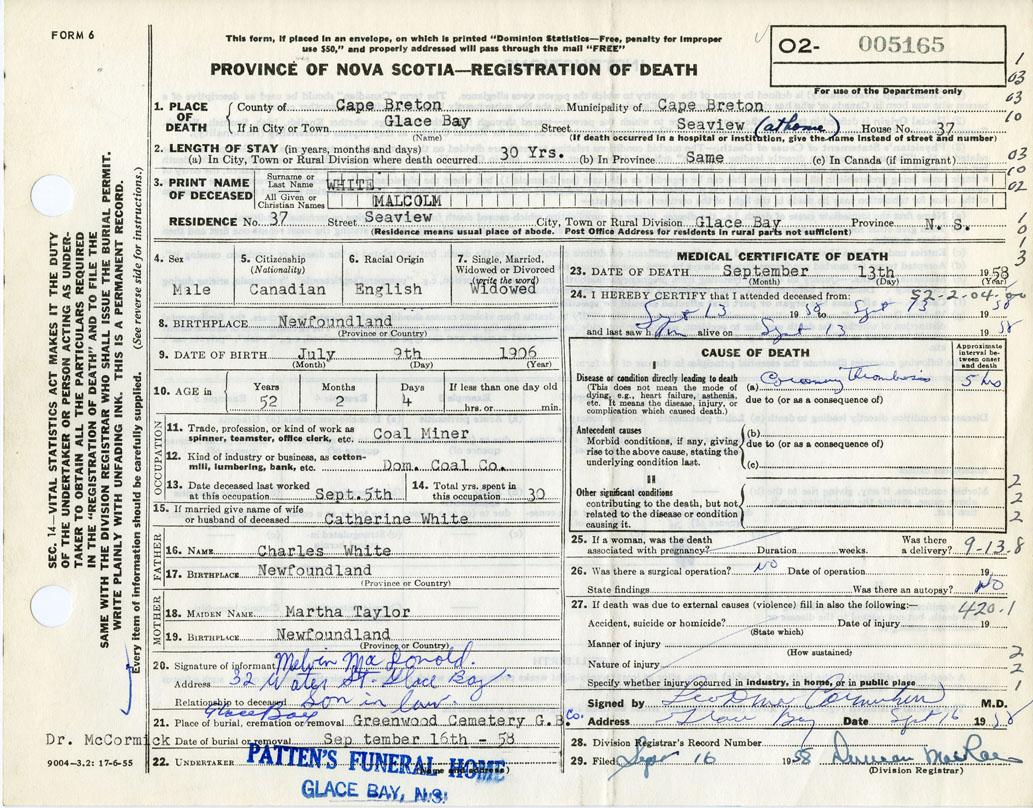 FORM 6
This form, if placed in an envelope, on which is printed "Dominion Statistics—Free, penalty for improper
use $50," and properly addressed will pass through the mail "FREE"
PROVINCE OF NOVA SCOTIA—REGISTRATION OF DEATH
O2- 005165
For use of the Department only
1
03
03
10
03
10
02
1
0
1
3
1. PLACE OF DEATH
County of Cape Breton Municipality of Cape Breton
If in City or Town Glace Bay Street Seaview (at home) House No. 37
(Name) (If death occurred in a hospital or institution, give the name instead of street and number)
2. LENGTH OF STAY (in years, months and days)
(a) In City, Town or Rural Division where death occurred 30 Yrs. (b) In Province Same (c) In Canada (if immigrant)
3. PRINT NAME OF DECEASED
Surname or Last Name WHITE.
All Given or Christian Names MALCOLM
RESIDENCE No. 37 Street Seaview City, Town or Rural Division Glace Bay Province N. S.
(Residence means usual place of abode. Post Office Address for residents in rural parts not sufficient)
SEC. 14—VITAL STATISTICS ACT MAKES IT THE DUTY
OF THE UNDERTAKER OR PERSON ACTING AS UNDER-
TAKER TO OBTAIN ALL THE PARTICULARS REQUIRED
IN THE "REGISTRATION OF DEATH" AND TO FILE THE
SAME WITH THE DIVISION REGISTRAR WHO SHALL ISSUE THE BURIAL PERMIT.
WRITE PLAINLY WITH UNFADING INK. THIS IS A PERMANENT RECORD.
Every item of information should be carefully supplied. (See reverse side for instructions.)
4. Sex
Male
5. Citizenship
(Nationality)
Canadian
6. Racial Origin
English
7. Single, Married,
Widowed or Divorced
(write the word)
Widowed
8. BIRTHPLACE Newfoundland
(Province or Country)
9. DATE OF BIRTH July 9th 1906
(Month) (Day) (Year)
10. AGE in
Years Months Days If less than one day old
52 2 4 hrs. or min.
OCCUPATION
11. Trade, profession, or kind of work as
spinner, teamster, office clerk, etc. Coal Miner
12. Kind of industry or business, as cotton-
mill, lumbering, bank, etc. Dom. Coal Co.
13. Date deceased last worked
at this occupation Sept.5th
14. Total yrs. spent in
this occupation 30
15. If married give name of wife
or husband of deceased Catherine White
FATHER
16. NAME Charles White
17. BIRTHPLACE Newfoundland
(Province or Country)
MOTHER
18. MAIDEN NAME Martha Taylor
19. BIRTHPLACE Newfoundland
(Province or Country)
20. Signature of informant Melvin MacDonald.
Address 32 Water St. Glace Bay
Relationship to deceased Son in law.
Glace Bay
21. Place of burial, cremation or removal Greenwood Cemetery G.B. Co.
Dr. McCormick Date of burial or removal Sep tember 16th - 58
9004—3.2: 17-6-55
22. UNDERTAKER PATTEN'S FUNERAL HOME
(Name and address)
GLACE BAY, N.S.
MEDICAL CERTIFICATE OF DEATH
23. DATE OF DEATH September 13th 1958
(Month) (Day) (Year)
24. I HEREBY CERTIFY that I attended deceased from: 52-2-04.00
Sept 13 1958 to Sept 13 1958
and last saw him alive on Sept 13 1958
CAUSE OF DEATH
Approximate
interval be-
tween onset
and death
I
Disease or condition directly leading to death
(This does not mean the mode of
dying, e.g., heart failure, asthenia,
etc. It means the disease, injury, or
complication which caused death.)
(a) Coronary Thrombosis 5 hrs
due to (or as a consequence of)
Antecedent causes
Morbid conditions, if any, giving
rise to the above cause, stating the
underlying condition last.
(b)
due to (or as a consequence of)
(c)
II
Other significant conditions
contributing to the death, but not
related to the disease or condition
causing it.
2
2
2
25. If a woman, was the death
associated with pregnancy? Duration weeks. Was there
a delivery? 9-13-8
26. Was there a surgical operation? NO Date of operation 19
State findings Was there an autopsy? NO
27. If death was due to external causes (violence) fill in also the following:— 420.1
Accident, suicide or homicide? Date of injury 19
(State which)
Manner of injury
(How sustained)
Nature of injury
Specify whether injury occurred in industry, in home, or in public place
2
2
1
Signed by M.D.
Address Glace Bay Date Sept 16 1958
28. Division Registrar's Record Number
29. Filed Sept 16 1958 Duncan MacRae
(Division Registrar)